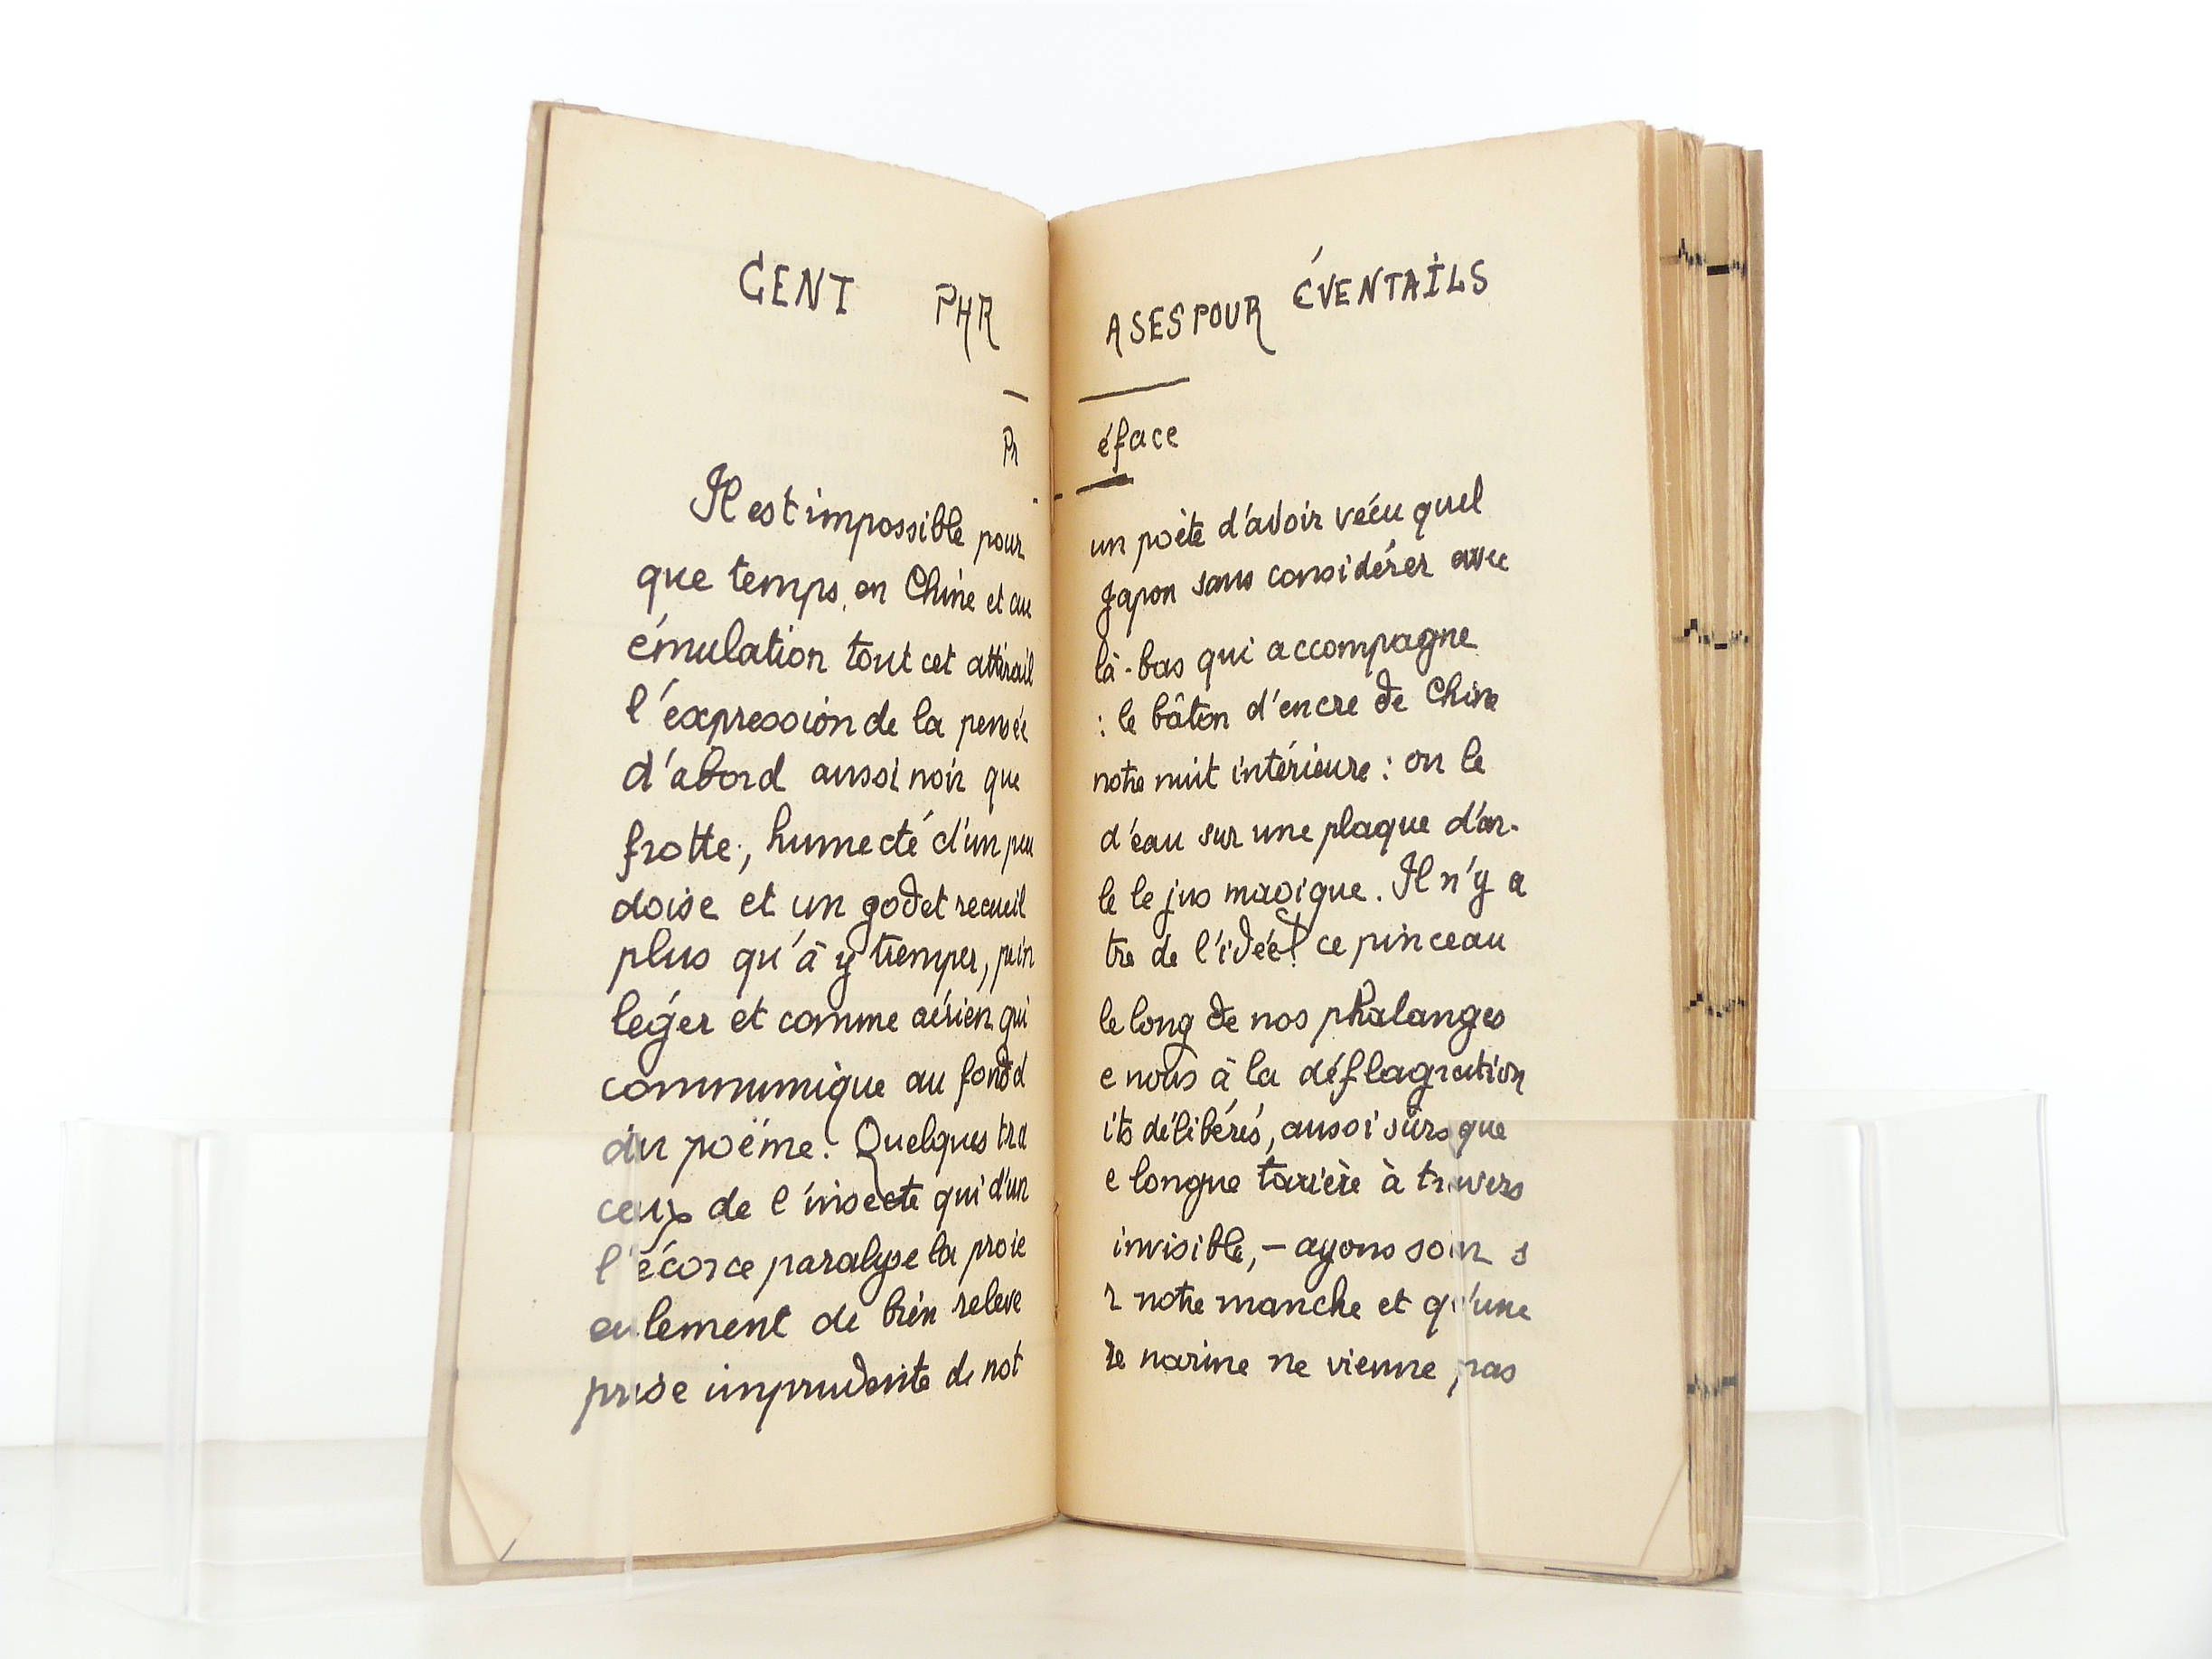 CENT PHRASES POUR ÉVENTAILS
Préface
Il est impossible pour un poète d'avoir vécu quel
que temps, en Chine et au Japon sans considérer avec
émulation tout cet attirail là-bas qui accompagne
l'expression de la pensée : le bâton d'encre de Chine
d'abord aussi noir que notre nuit intérieure : on le
frotte, humecté d'un peu d'eau sur une plaque d'ar-
doise et un godet recueille le jus magique. Il n'y a
plus qu'à y tremper, peintre de l'idée! ce pinceau
léger et comme aérien qui le long de nos phalanges
communique au fond de nous à la déflagration
du poëme. Quelques traits délibérés, aussi sûrs que
ceux de l'insecte qui d'une longue tarière à travers
l'écorce paralyse la proie invisible, — ayons soin s
eulement de bien relever notre manche et qu'une
prise imprudente de notre narine ne vienne pas